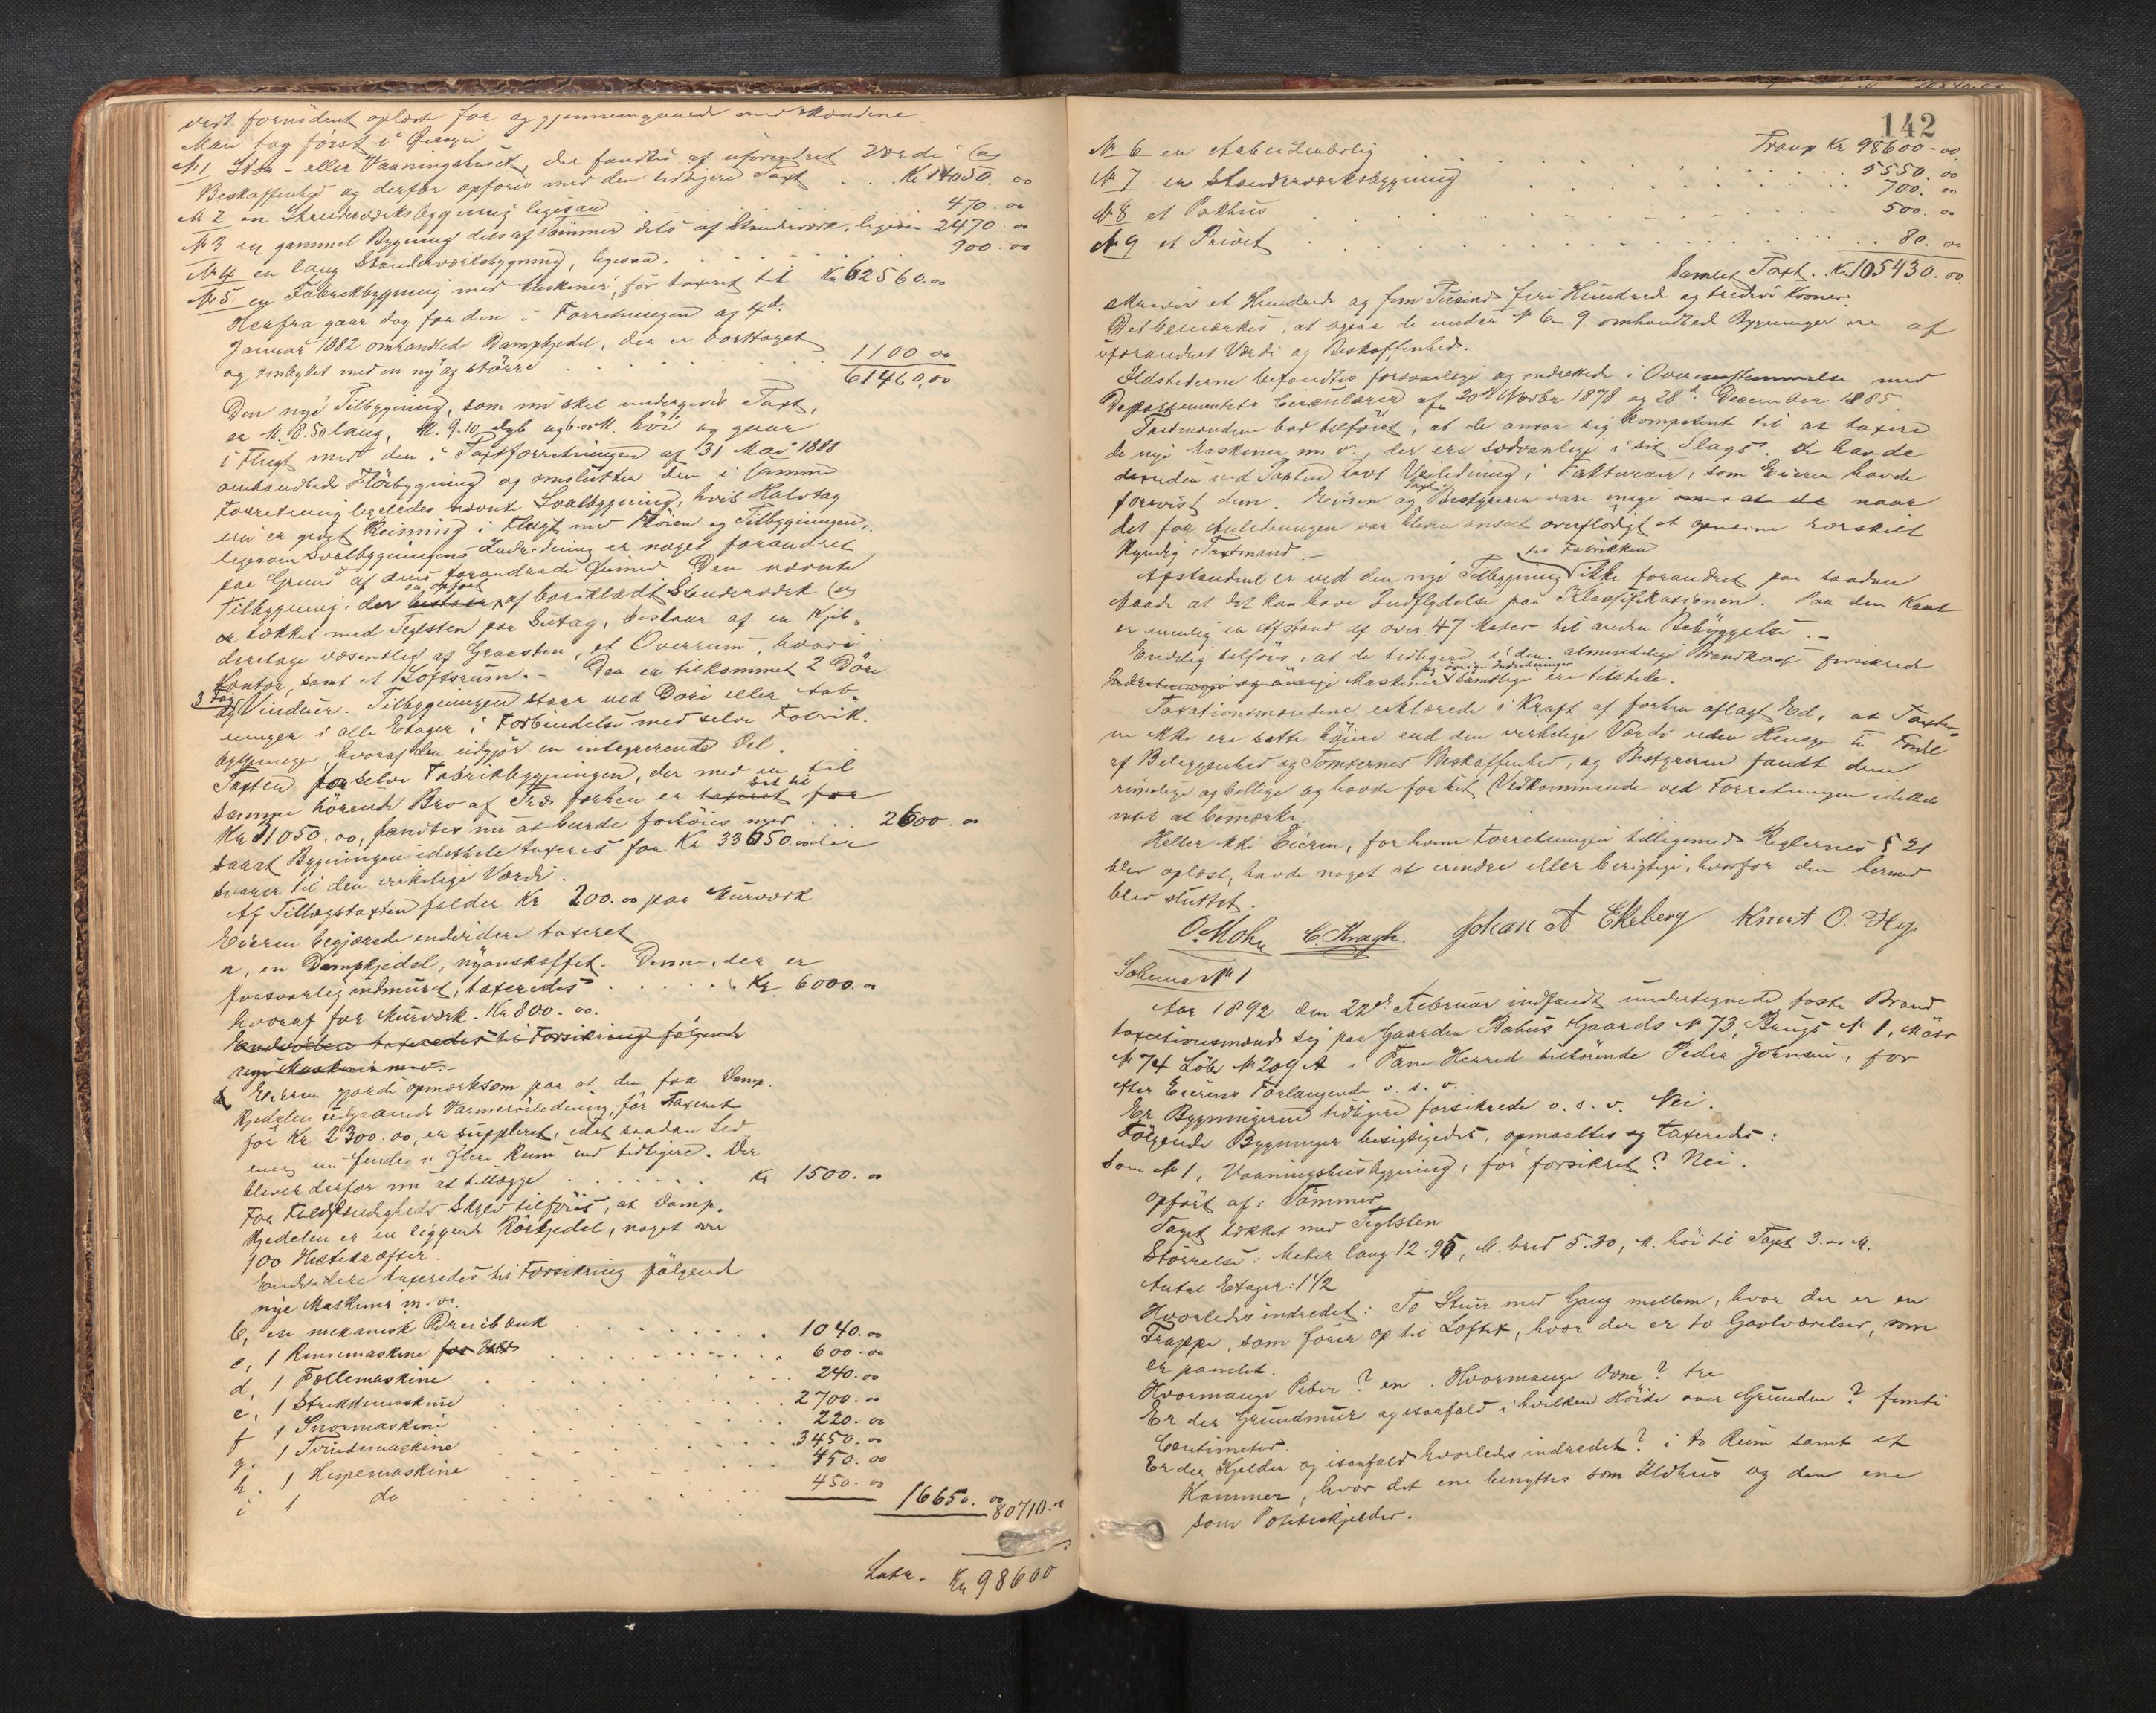 vist fornødent oplæst for og gjennemgaaet med Mændene
Man tog først i Øiesyn
№ 1 Stue- eller Vaaningshuset, der fandtes af uforandret Værdi og
Beskaffenhed og derfor opføres med den tidligere Taxt . . . Kr 14050.00
№ 2 en Stænderværksbygning ligesaa 470.00
№ 3 en gammel Bygning dels af Tømmer dels af Stænderværk, ligesaa 2470.00
№ 4 en lang Stænderværksbygning, ligesaa . . . . . . 900.00
№ 5 en Fabrikbygning med Maskiner, før taxeret til Kr 62560.00
Herfra gaar dog for den i Forretningen af 4d.
Januar 1882 omhandlede Dampkjedel, der er borttaget
og ombyttet med en ny og større . . . . . . 1100 00
61460.00
Den nye Tilbygning, som nu skal undergives Taxt,
er M. 8.50 lang, M. 9.10 dyb og 6.00 M. høi og gaar
i Flugt med den i Taxtforretningen af 31 Mai 1888
omhandlede Hørbygning og omslutter den i samme
Forretning ligeledes nævnte Svalbygning, hvis Halvtag
nu er givet Reisning i Flugt med Hørens og Tilbygningen,
ligesom Svalbygningens Indredning er noget forandret
paa Grund af dens forandrede Øiemed. Den nævnte
Tilbygning, der er opført af bordklædt Stænderværk og
er tækket med Teglsten paa Sutag, bestaar af en Kjæl-
deretage væsentlig af Graasten, et Overrum, hvori
Kontor, samt et Loftsrum. - Der er tilkommet 2 Døre
og 3 Fag Vinduer. Tilbygningen staar ved Døre eller Aab-
ninger i alle Etager i Forbindelse med selve Fabrik-
bygningen, hvoraf den udgjør en integrerende Del.
Taxten for selve Fabrikbygningen, der med en til
samme hørende Bro af Træ forhen er taxeret for
Kr 31050.00, fandtes nu at burde forhøies med . . . 2600.00
saaat Bygningen idethele taxeres for Kr 33650.00 der
svarer til den virkelige Værdi.
Af Tillægstaxten falder Kr 200.00 paa Murværk
Eieren begjærede endvidere taxeret
a, en Dampkjedel, nyanskaffet. Denne, der er
forsvarlig indmuret, taxeredes . . . . . . Kr 6000.00
hvoraf for Murværk. Kr 800.00.
Endvidere taxeredes til Forsikring følgende
nye Maskiner m.v.
b Eieren gjorde opmærksom paa at den fra Damp-
kjedelen udgaaende Varmerørledning, før taxeret
for Kr 2300.00, er suppleret, idet saadan Led-
ning nu findes i flere Rum end tidligere. Der
bliver derfor nu at tillægge . . . . . . Kr 1500.00
For Fuldstændigheds Skyld tilføies, at Damp-
kjedelen er en liggende Rørkjedel, noget over
100 Hestekræfter.
Endvidere taxeredes til Forsikring følgende
nye Maskiner m.v.
b, en mekanisk Dreiebænk . . . . . . 1040.00
c, 1 Rensemaskine . . . . . . 600.00
d, 1 Foellemaskine . . . . . . 240.00
e, 1 Strikkemaskine . . . . . . 2700.00
f 1 Snormaskine . . . . . . 220.00
g. 1 Tvindemaskine . . . . . . 3450.00
h. 1 Hespemaskine . . . . . . 450.00
i 1 do . . . . . . 450.00
16650.00 80710.00
Latr. Kr 98600
142
Transp Kr 98600.00
№ 6 en Arbeiderbolig . . . . . . 5550.00
№ 7 en Stænderværksbygning . . . . . . 700.00
№ 8 et Pakhus . . . . . . 500.00
№ 9 et Privet . . . . . . 80.00
Samlet Taxt. Kr 105430.00
skriver et Hundrede og fem Tusinde fire Hundrede og tredive Kroner.
Det bemærkes, at ogsaa de under № 6-9 omhandlede Bygninger ere af
uforandret Værdi og Beskaffenhed.
Ildstederne befandtes forsvarlige og indrettede i Overensstemmelse med
Departementets Circulærer af 20de Novbr 1878 og 28d. December 1885.
Taxtmændene bad tilføiet, at de anser sig kompetent til at taxere
de nye Maskiner m.v., der ere sædvanlige i sit Slags. De havde
desuden ved Taxten havt Veiledning i Fakturaer, som Eieren havde
forevist dem. Eieren og Taxtbestyreren vare enige naar
det for Anledningen var bleven anseet overflødigt at opnævne særskilt
kyndig Taxtmand. -
Afstandene er ved den nye Tilbygning til Fabrikken ikke forandret paa saadan
Maade at det kan have Indflydelse paa Klassifikasjonen. Paa den Kant
er nemlig en Afstand af over 47 Meter til anden Bebyggelse. -
Endelig tilføies, at de tidligere i den almindelige Brandkasse forsikrede
Maskiner og øvrige Indretninger samtlige ere tilstede.
Taxationsmændene erklærede i Kraft af forhen aflagt Ed, at Taxter-
ne ikke ere satte høiere end den virkelige Værdi uden Hensyn til Fordel
af Beliggenhed og Tomternes Beskaffenhed, og Bestyreren fandt dem
rimelige og billige og havde for sit Vedkommende ved Forretningen idethele
intet at bemærke.
Heller ikke Eieren, for hvem Forretningen tilligemed Reglernes § 21
blev oplæst, havde noget at erindre eller berigtige, hvorfor den hermed
blev sluttet.
O. Mohn C. Kragh. Johan A Ekeberg Knut O. Hej.
Schema № 1
Aar 1892 den 22de Februar indfandt undertegnede faste Brand
taxationsmænd sig paa Gaarden Gaards № 73, Brugs № 1, Matr
№ 74 Løbe № 209 A i Fane Herred tilhørende Peder Johnsen, for
efter Eierens Forlangende o.s.v.
Er Bygningerne tidligere forsikrede o.s.v. Nei.
Følgende Bygninger besigtigedes, opmaaltes og taxeredes:
Som № 1, Vaaningshusbygning, før forsikret? Nei.
Opført af: Tømmer
Taget tækket med Teglsten
Størrelse: Meter lang 12.95, M. bred 5.30, M. høi til Taget 3.00 M.
Antal Etager: 1 1/2
Hvorledes indredet: To Stuer med Gang mellem, hvor der er en
Trappe, som fører op til Loftet, hvor der er to Gavlværelser, som
er panelet.
Hvormange Piber? en. Hvormange Ovne? tre
Er der Grundmur og isaafald i hvilken Høide over Grunden? femti
Centimeter.
Er der Kjelder og isaafald hvorledes indredet? i to Rum samt et
Kammer, hvor det ene benyttes som Ildhus og den ene
som Potetkjelder.